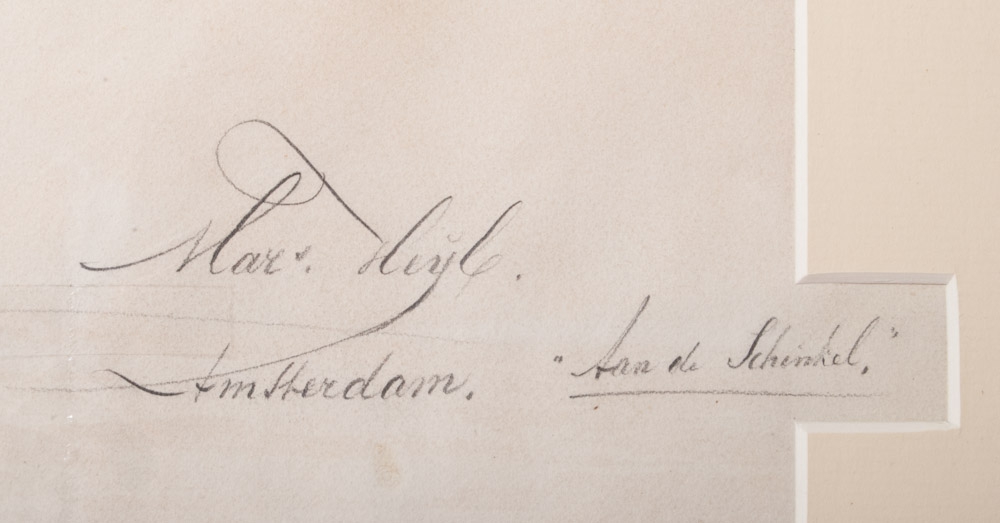 Mars. Heÿl.
Amsterdam.
"Aan de Schinkel."